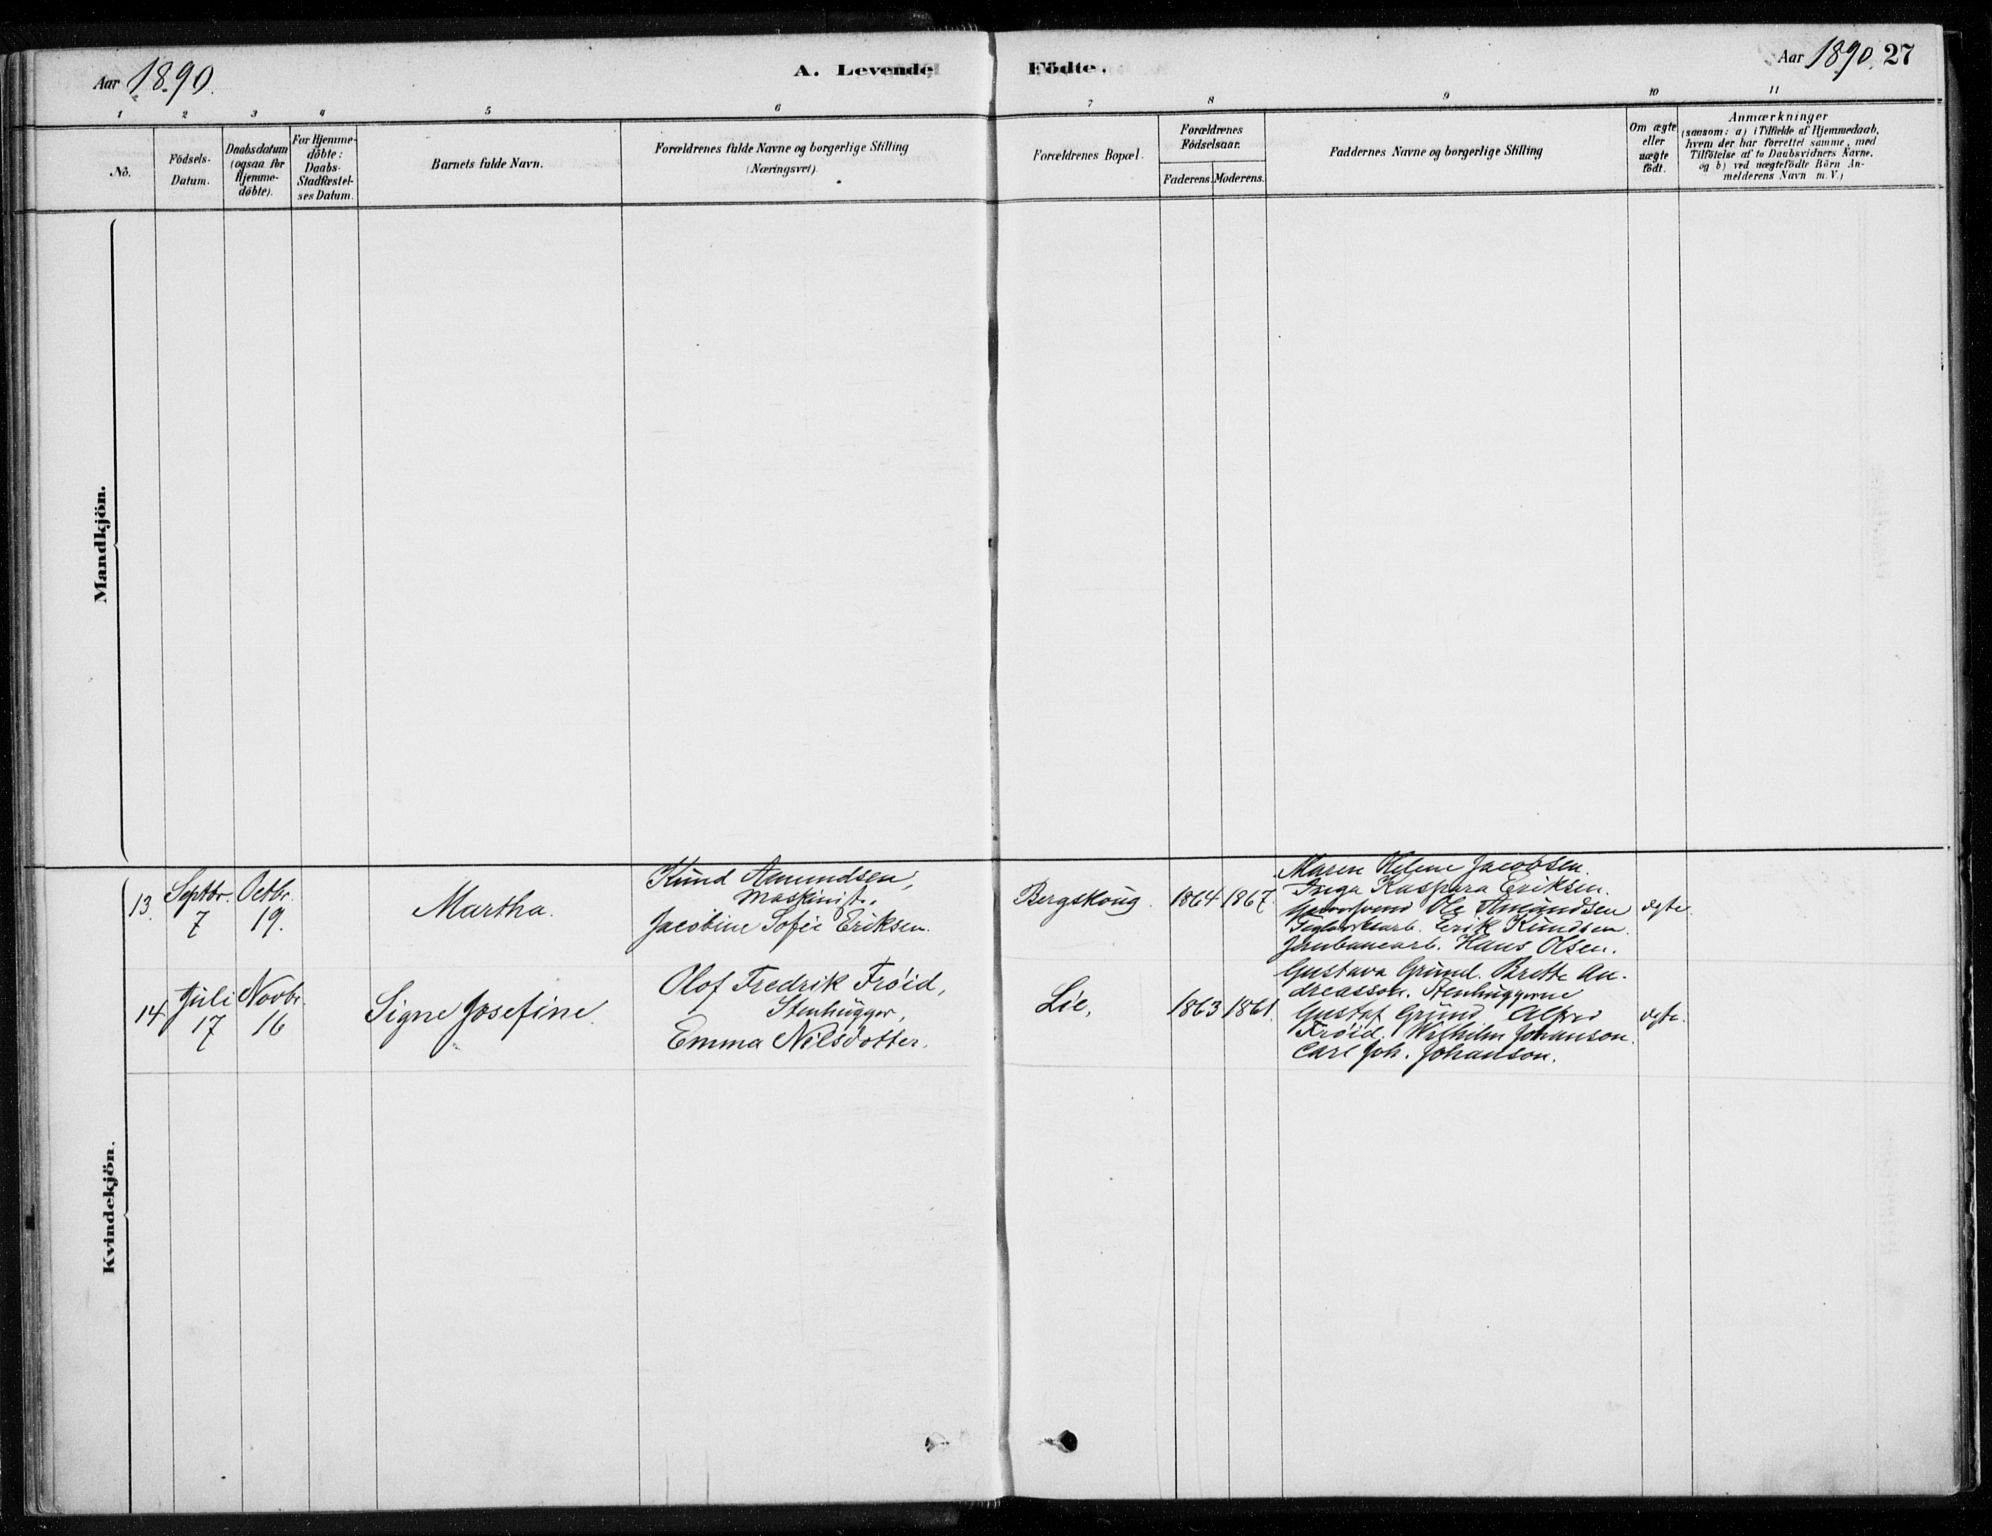 Aar 1890.
A. Levende Födte.
Aar 1890. 27
1 2 3 4 5 6 7 8 9 10 11
No.
Födsels-
Datum.
Daabsdatum
(ogsaa for
Hjemme-
döbte).
For Hjemme-
döbte:
Daabs-
Stadfæstel-
ses Datum.
Barnets fulde Navn.
Forældrenes fulde Navne og borgerlige Stilling
(Næringsvei)
Forældrenes Bopæl.
Forældrenes
Födselsaar.
Faderens. Moderens.
Faddernes Navne og borgerlige Stilling
Om ægte
eller
uægte
födt.
Anmærkninger
(saasom: a) i Tilfælde af Hjemmedaab,
hvem der har forrettet samme, med
Tilföielse af to Daabsvidners Navne,
og b) ved uægtefödte Börn An-
melderens Navn m. V.)
Mandkjön.
Kvindekjön.
13.
Septbr.
7
Octbr.
19.
Martha.
Knud Amundsen,
Maskinist.
Jacobine Sofie Eriksen.
Bergskoug.
1864
1867.
Maren Helene Jacobsen.
Inga Kaspara Eriksen.
Ole Amundsen
Teglværksarb. Erik Knudsen.
Jernbanearb. Hans Olsen.
ægte.
14
Juli
17
Novbr.
16
Signe Josefine.
Olof Fredrik Fröid,
Stenhugger,
Emma Nilsdotter.
Lie,
1863
1861.
Gustava Grund. Brette An-
dreasson. Stenhuggerne
Gustaf Grund, Alfred
Fröid. Wilhelm Johanson.
Carl Joh. Johanson.
ægte.